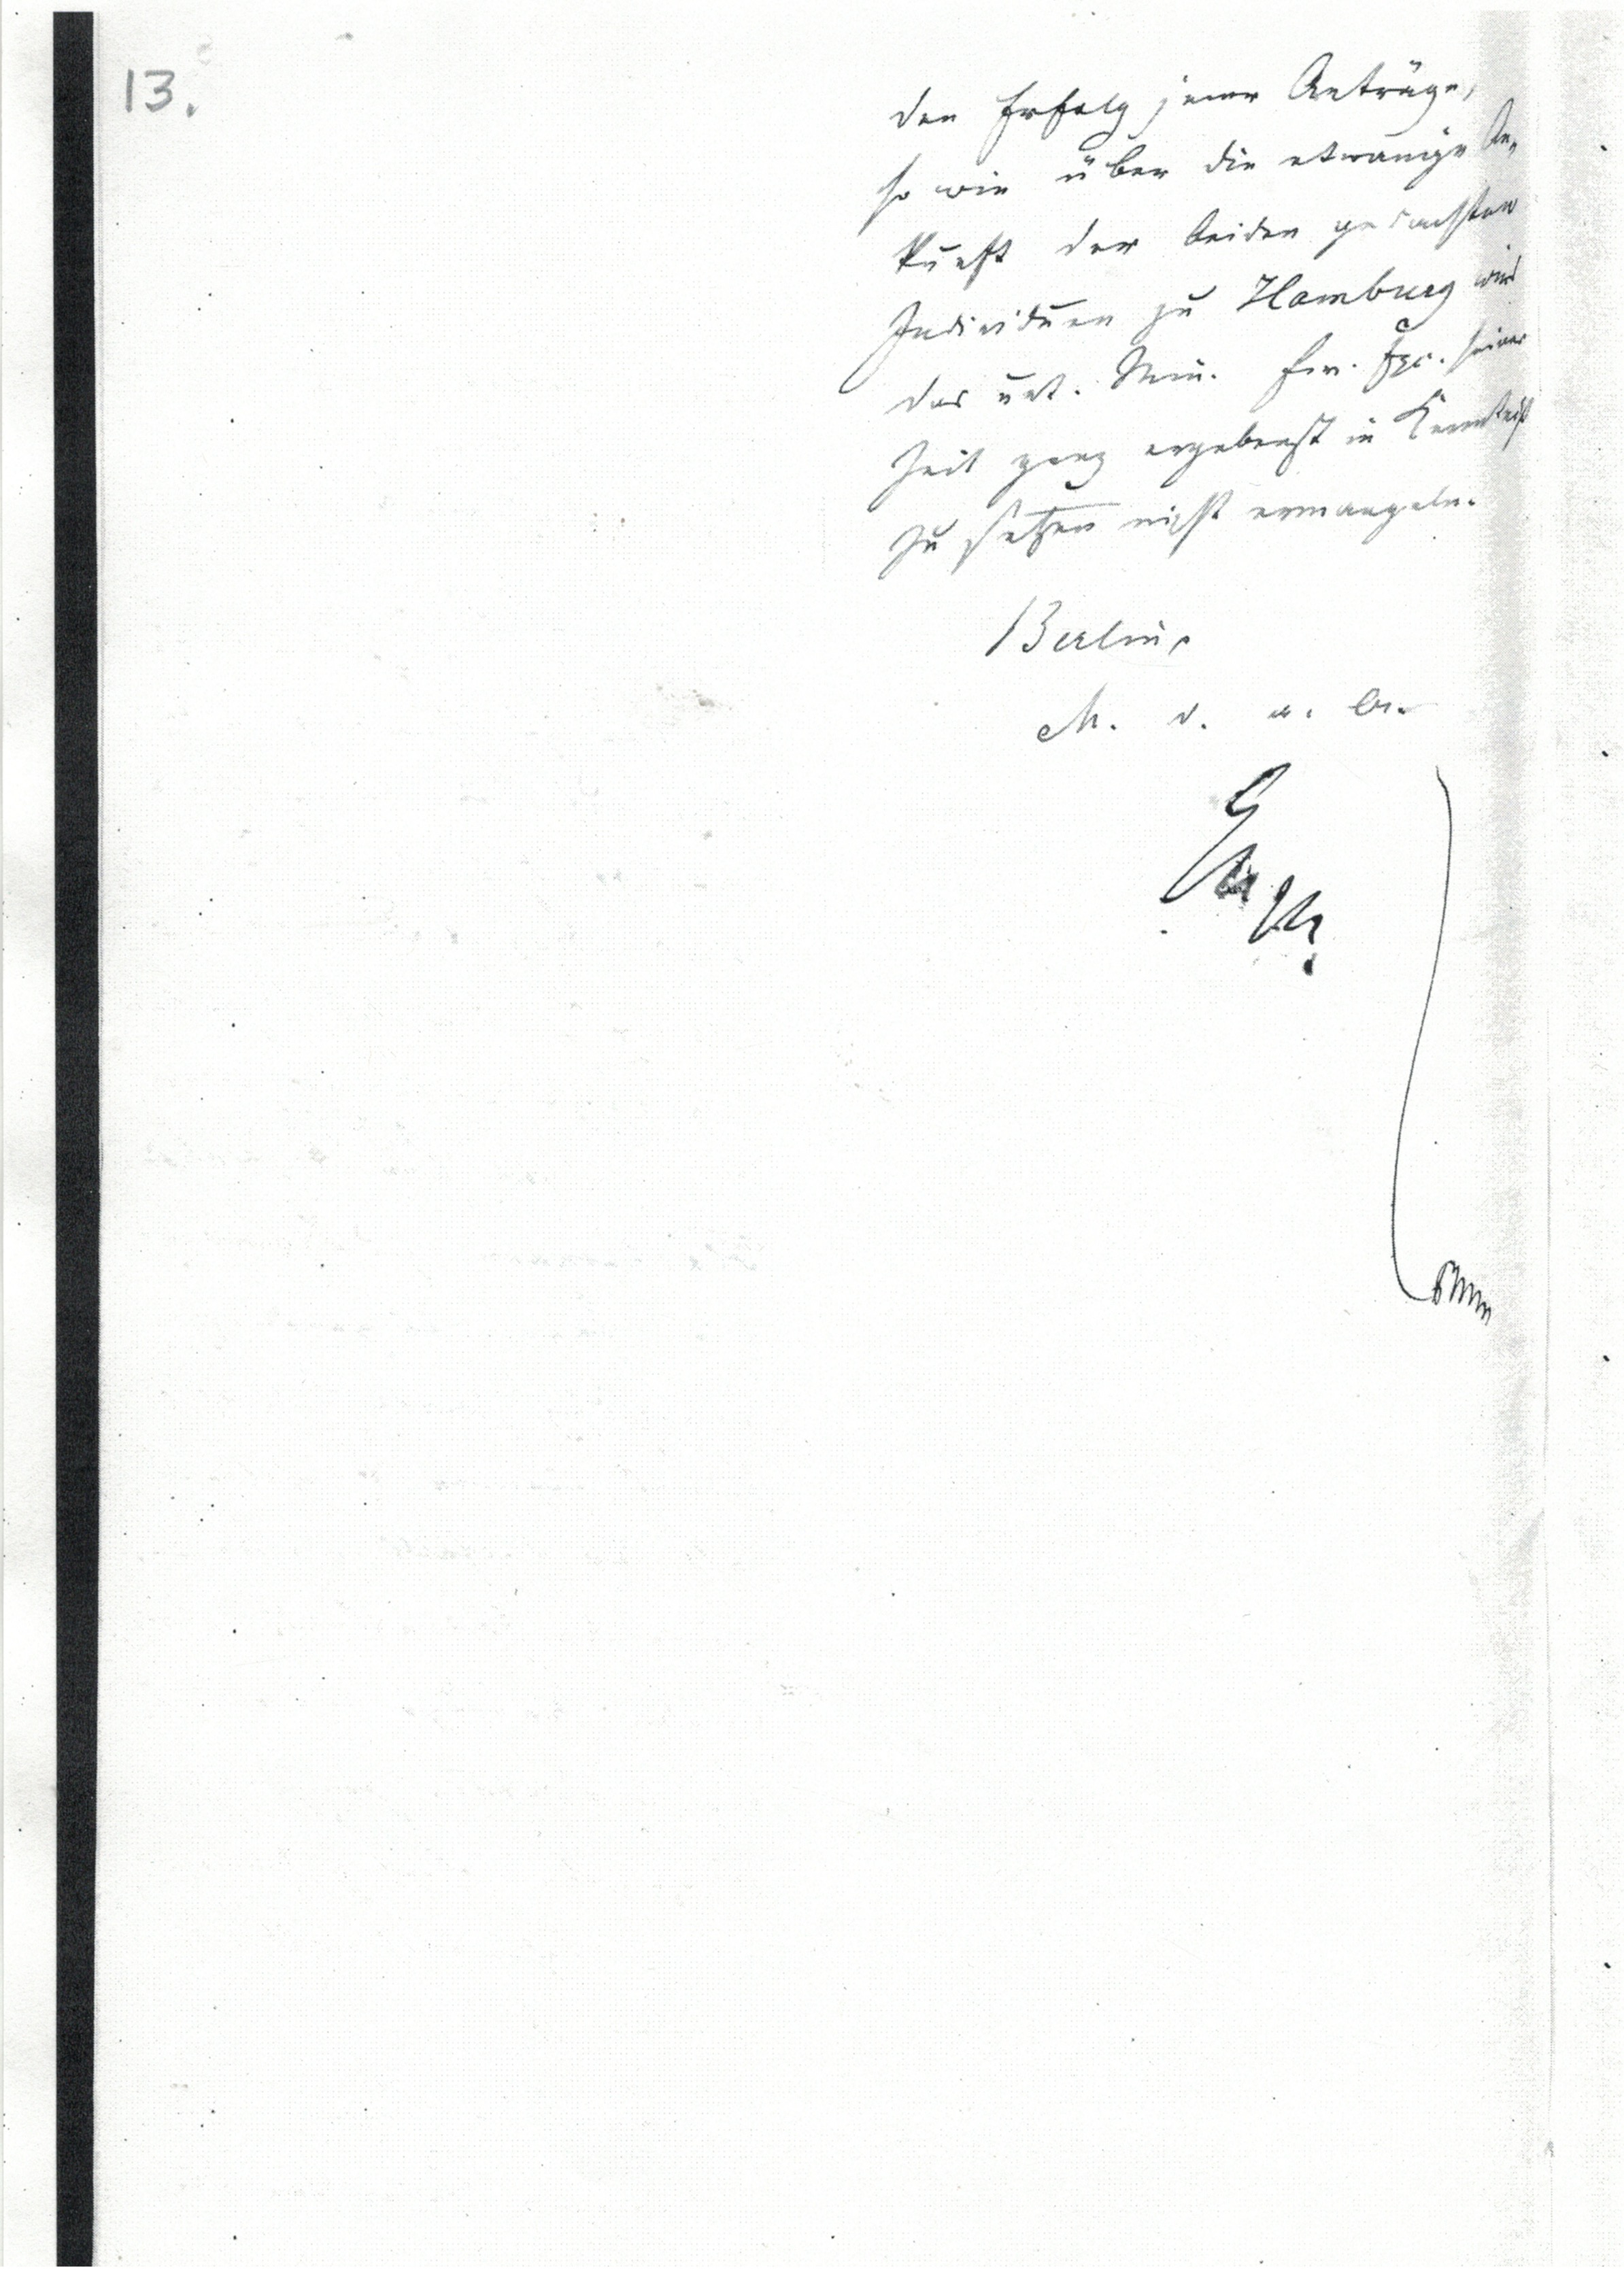 13.
den Erfolg jener Anträge,
so wie über die etwanige An-
kunft der beiden gedachten
Individuen zu Hamburg wird
das unt. Min. Ew. pp. seiner
Zeit ganz ergebenst in Kenntniß
zu setzen nicht ermangeln.
Berlin,
M. d. a. A.